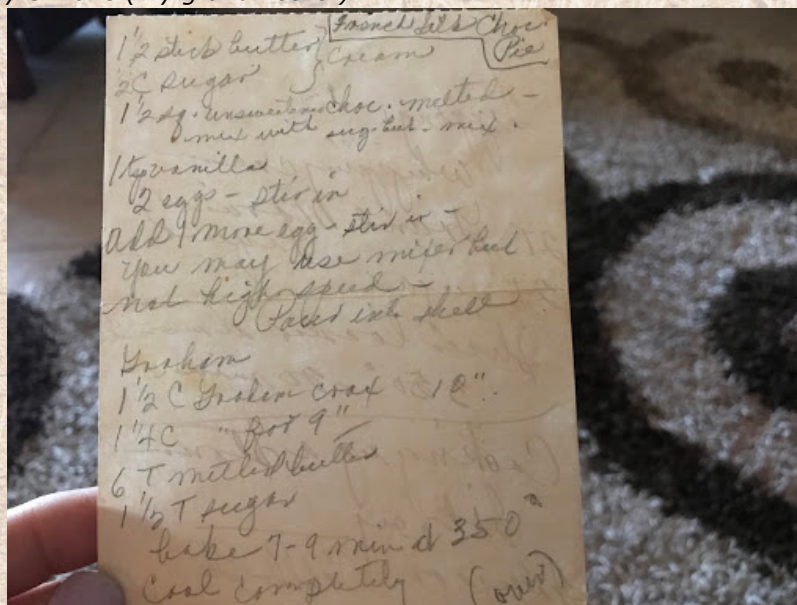 French Silk Choc.
Pie
1 1/2 stick butter } Cream
2C sugar
1 1/2 sq. unsweetened choc. melted -
mix with sug. but. mix.
1 tsp vanilla
2 eggs - stir in
Add 1 more egg - stir in -
you may use mixer but
not high speed -
Pour into shell
Graham
1 1/2 C Graham crax 10".
1 1/4 C " for 9"
6 T melted butter
1 1/2 T sugar
bake 7-9 min at 350°
Cool completely (over)